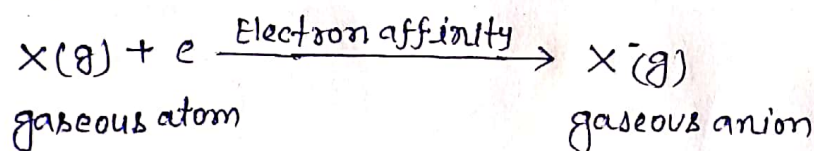 Electron affinity
X(g) + e ⟶ X⁻(g)
gaseous atom gaseous anion